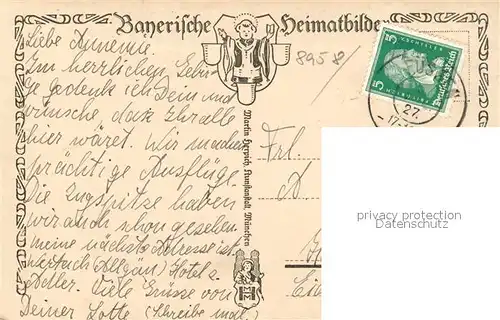 Bayerische Heimatbilder
Liebe Annemie.
Im herrlichen Gebir
ge gedenke ich Dein und
wünsche, dass Ihr alle
hier wäret. Wir machen
prächtige Ausflüge.
Die Zugspitze haben
wir auch schon gesehen.
meine nächste Adresse ist
Wertach (Allgäu) Hotel z.
Adler. Viele Grüsse von
Deiner Lotte (Schreibe mal)
8958
Martin Herpich, Kunstanstalt, München
5 5
Deutsches Reich
27.
Frl.
A
privacy protection
Datenschutz